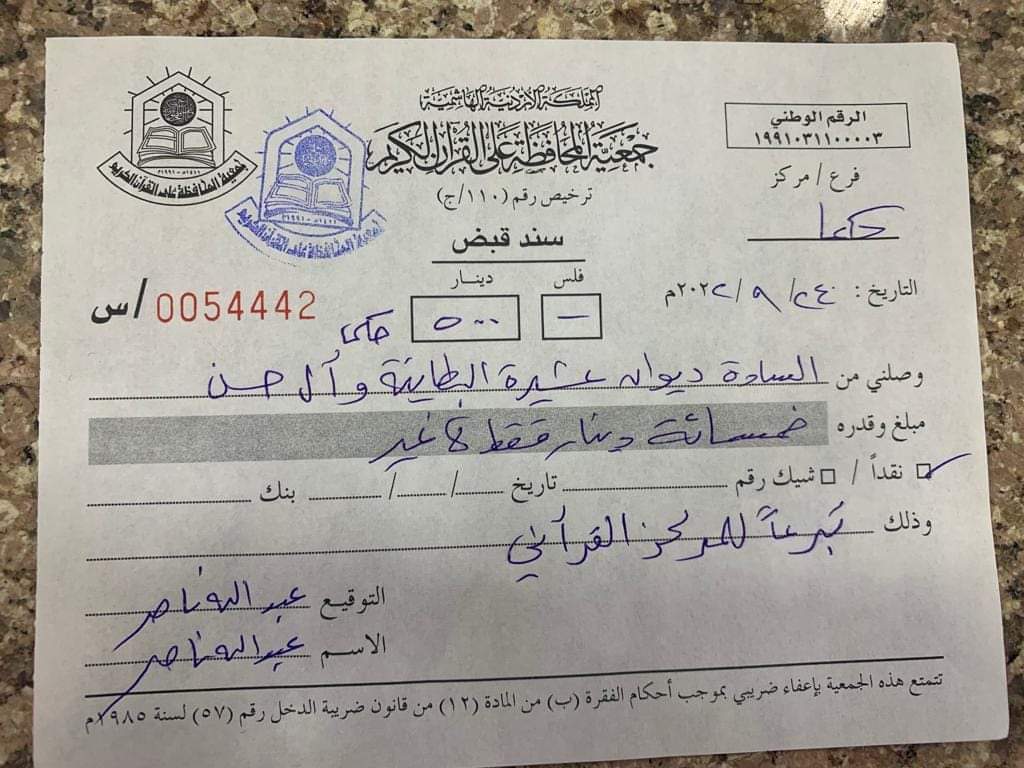 المملكة الأردنية الهاشمية
جمعية المحافظة على القرآن الكريم
ترخيص رقم (١١٠/ج)
الرقم الوطني
١٩٩١٠٣١١٠٠٠٠٣
فرع / مركز
جمعية المحافظة على القرآن الكريم
١٤١١هـ - ١٩٩١م
جمعية المحافظة على القرآن الكريم
١٤١١هـ - ١٩٩١م
سند قبض
فلس دينار
— ٥٠٠
0054442 / س
التاريخ : ٢٤ / ٩ / ٢٠٢٢م
وصلني من السادة ديوان عشيرة البطاينة وآل حسن
مبلغ وقدره خمسمائة دينار فقط لا غير
نقداً / شيك رقم تاريخ / / بنك
وذلك تبرعاً للمركز القرآني
التوقيع عبدالله ناصر
الاسم عبدالله ناصر
تتمتع هذه الجمعية بإعفاء ضريبي بموجب أحكام الفقرة (ب) من المادة (١٢) من قانون ضريبة الدخل رقم (٥٧) لسنة ١٩٨٥م